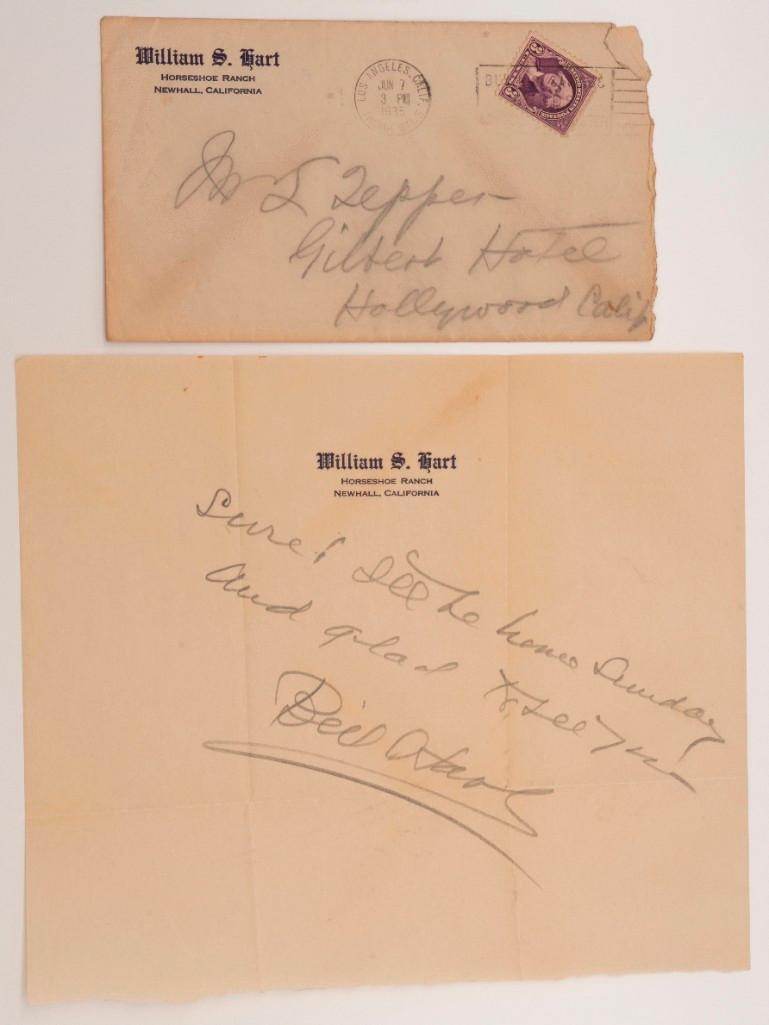 William S. Hart
HORSESHOE RANCH
NEWHALL, CALIFORNIA
LOS ANGELES, CALIF.
JUN 7
3 PM
1935
3¢ 3¢
Mr L Tepper
Gilbert Hotel
Hollywood Calif
William S. Hart
HORSESHOE RANCH
NEWHALL, CALIFORNIA
Sure! I'll be home Sunday
And glad to see you
Bill Hart